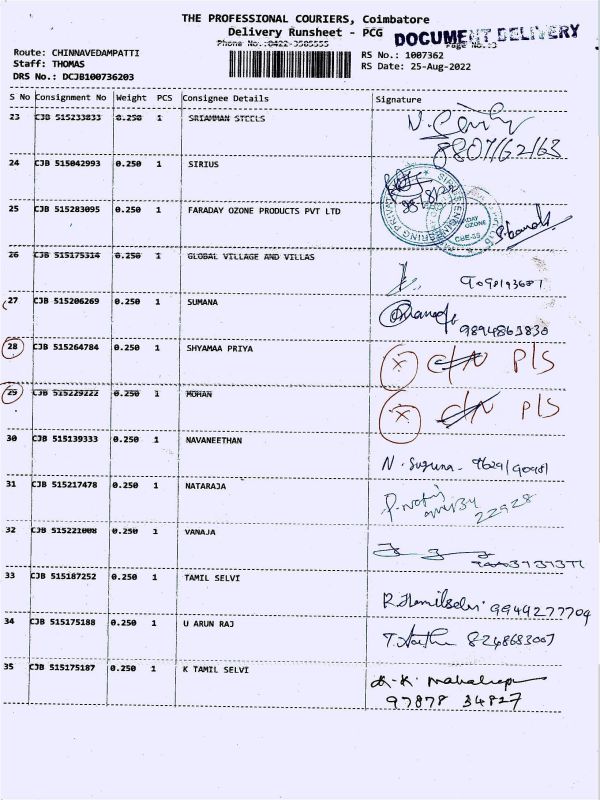 THE PROFESSIONAL COURIERS, Coimbatore
Delivery Runsheet - PCG
DOCUMENT DELIVERY
Phone No.:0422-3585555
Page No.:3
Route: CHINNAVEDAMPATTI
RS No.: 1007362
Staff: THOMAS
RS Date: 25-Aug-2022
DRS No.: DCJB100736203
S No Consignment No Weight PCS Consignee Details Signature
23 CJB 515233833 0.250 1 SRIAMMAN STEELS
8807162163
24 CJB 515042993 0.250 1 SIRIUS
25 CJB 515283095 0.250 1 FARADAY OZONE PRODUCTS PVT LTD
26 CJB 515175314 0.250 1 GLOBAL VILLAGE AND VILLAS
27 CJB 515206269 0.250 1 SUMANA
9894863830
28 CJB 515264784 0.250 1 SHYAMAA PRIYA C/N P/S
29 CJB 515229222 0.250 1 MOHAN C/N P/S
30 CJB 515139333 0.250 1 NAVANEETHAN N. Suguna
31 CJB 515217478 0.250 1 NATARAJA
22928
32 CJB 515221008 0.250 1 VANAJA
33 CJB 515187252 0.250 1 TAMIL SELVI
R.Thamilselvi 9944277704
34 CJB 515175188 0.250 1 U ARUN RAJ
8248683007
35 CJB 515175187 0.250 1 K TAMIL SELVI
97878 34827